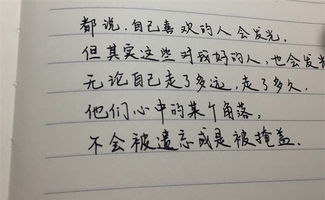 都说,自己喜欢的人会发光.
但其实这些对我好的人,也会发光
无论自己走了多远,走了多久.
他们心中的某个角落,
不会被遗忘或是被掩盖.